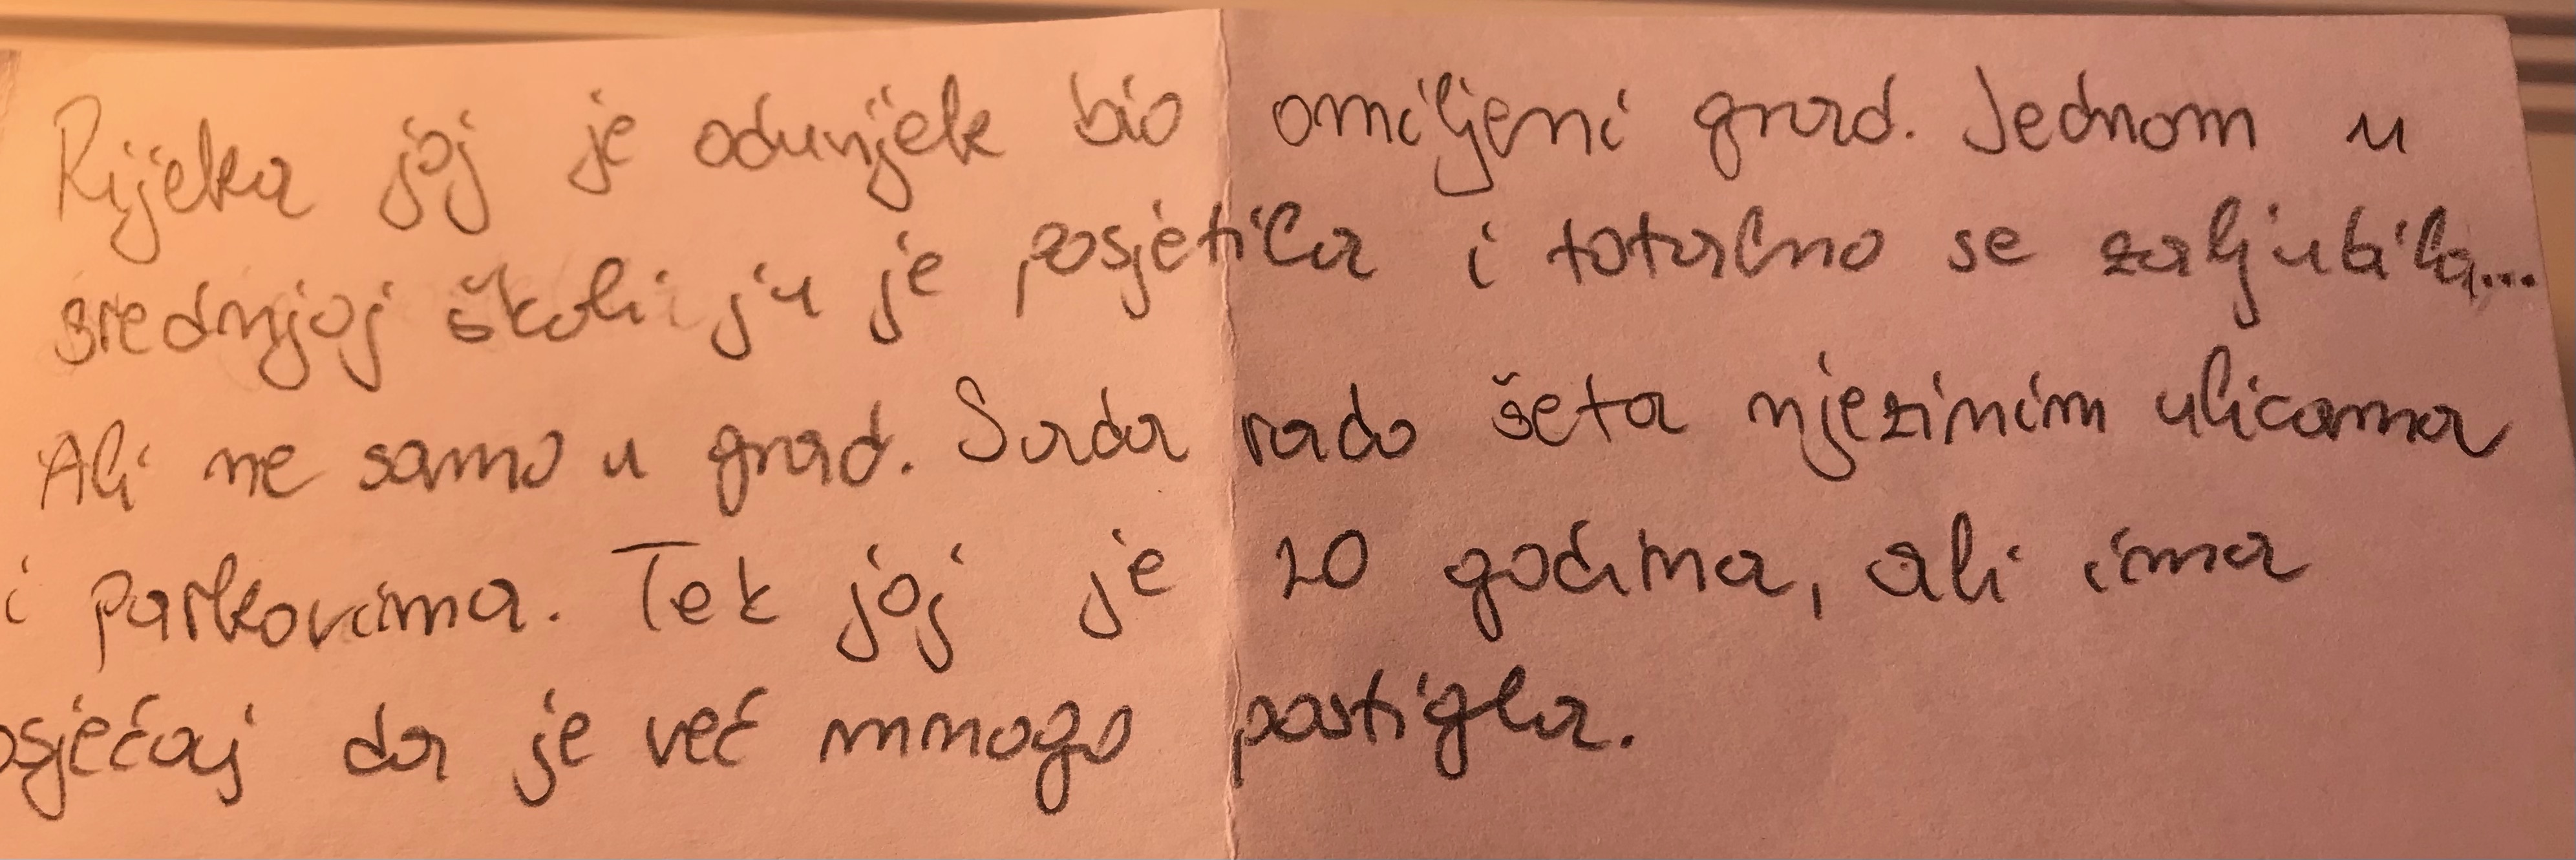 Rijeka joj je oduvijek bio omiljeni grad. Jednom u
srednjoj školi ju je posjetila i totalno se zaljubila...
Ali ne samo u grad. Sada rado šeta njezinim ulicama
i parkovima. Tek joj je 20 godina, ali ima
osjećaj da je već mnogo postigla.